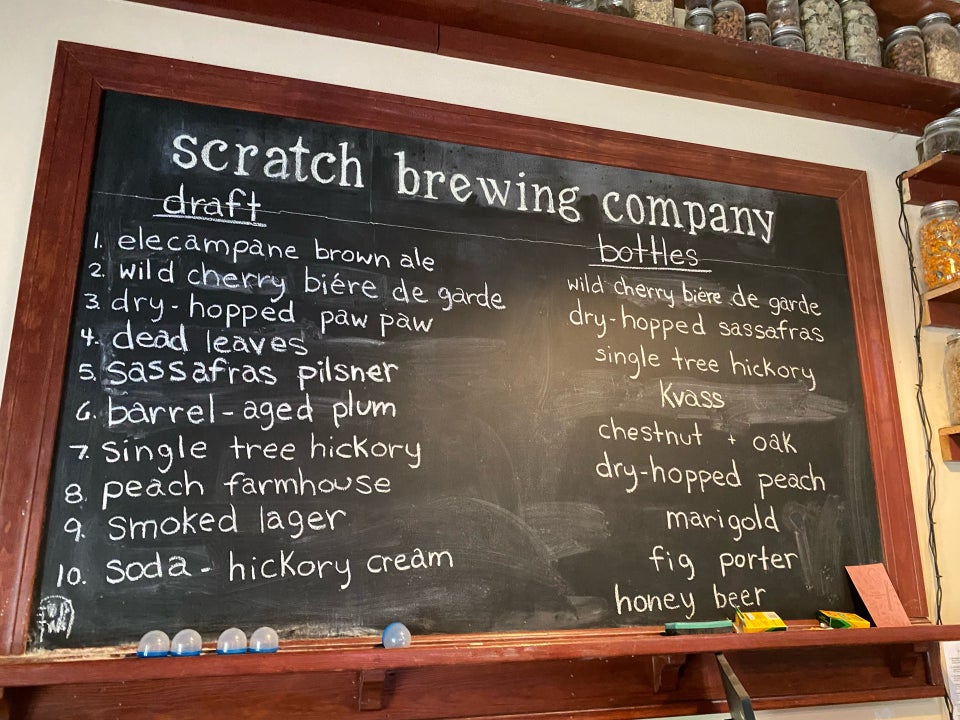 scratch brewing company
draft
1. elecampane brown ale
2. wild cherry biére de garde
3. dry-hopped paw paw
4. dead leaves
5. sassafras pilsner
6. barrel-aged plum
7. single tree hickory
8. peach farmhouse
9. smoked lager
10. soda - hickory cream
bottles
wild cherry biére de garde
dry-hopped sassafras
single tree hickory
Kvass
chestnut + oak
dry-hopped peach
marigold
fig porter
honey beer